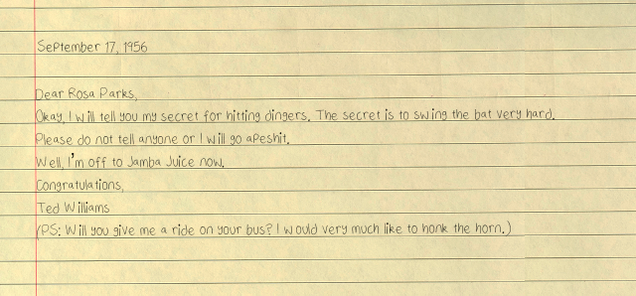 September 17, 1956
Dear Rosa Parks,
Okay, I will tell you my secret for hitting dingers. The secret is to swing the bat very hard.
Please do not tell anyone or I will go apeshit.
Well, I'm off to Jamba Juice now.
Congratulations,
Ted Williams
(PS: Will you give me a ride on your bus? I would very much like to honk the horn.)